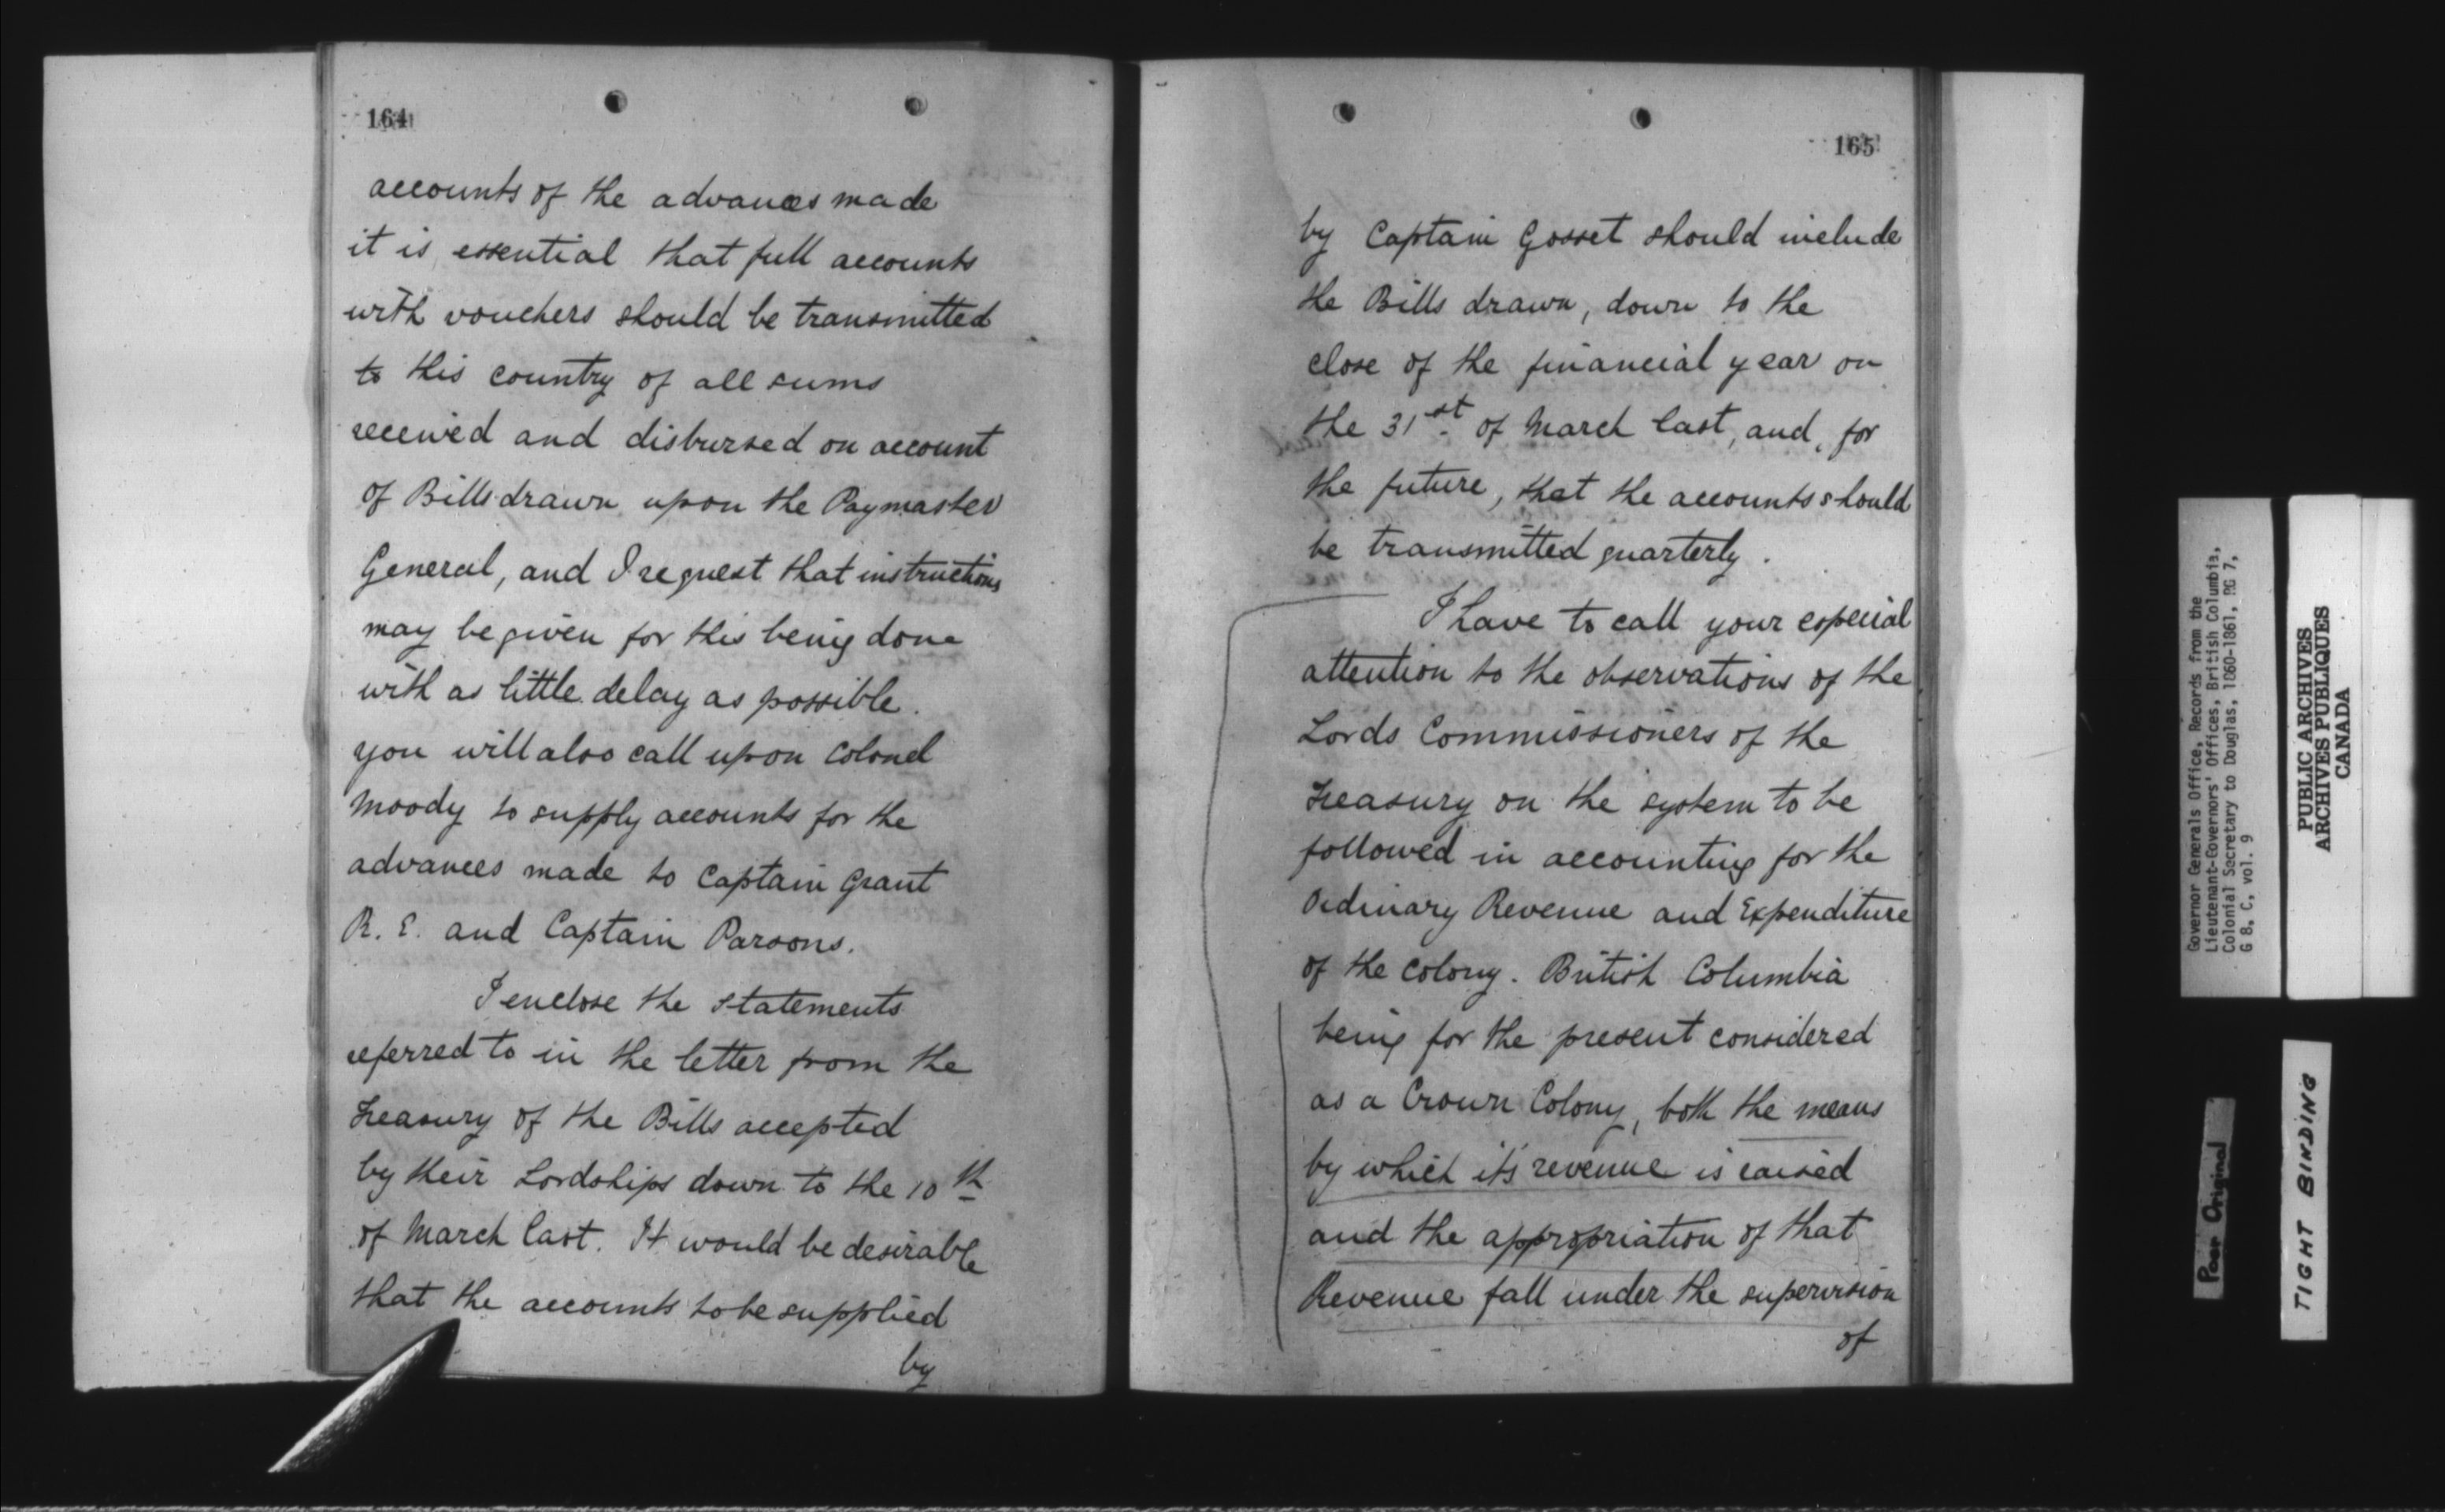 164
accounts of the advances made
it is essential that full accounts
with vouchers should be transmitted
to this country of all sums
received and disbursed on account
of Bills drawn upon the Paymaster
General, and I request that instructions
may be given for this being done
with as little delay as possible.
you will also call upon Colonel
Moody to supply accounts for the
advances made to Captain Grant
R. E. and Captain Parsons.
I enclose the statements
referred to in the letter from the
Treasury of the Bills accepted
by their Lordships down to the 10th
of March last. It would be desirable
that the accounts to be supplied
by
165
by Captain Gosset should include
the Bills drawn, down to the
close of the financial year on
the 31st of March last, and, for
the future, that the accounts should
be transmitted quarterly.
I have to call your especial
attention to the observations of the
Lords Commissioners of the
Treasury on the system to be
followed in accounting for the
Ordinary Revenue and Expenditure
of the Colony. British Columbia
being for the present considered
as a Crown Colony, both the means
by which its revenue is raised
and the appropriation of that
Revenue fall under the supervision
of
Governor Generals Office, Records from the
Lieutenant-Governors' Offices, British Columbia,
Colonial Secretary to Douglas, 1860-1861, RG 7,
G 8. C, vol. 9
PUBLIC ARCHIVES
ARCHIVES PUBLIQUES
CANADA
Poor Original
TIGHT BINDING